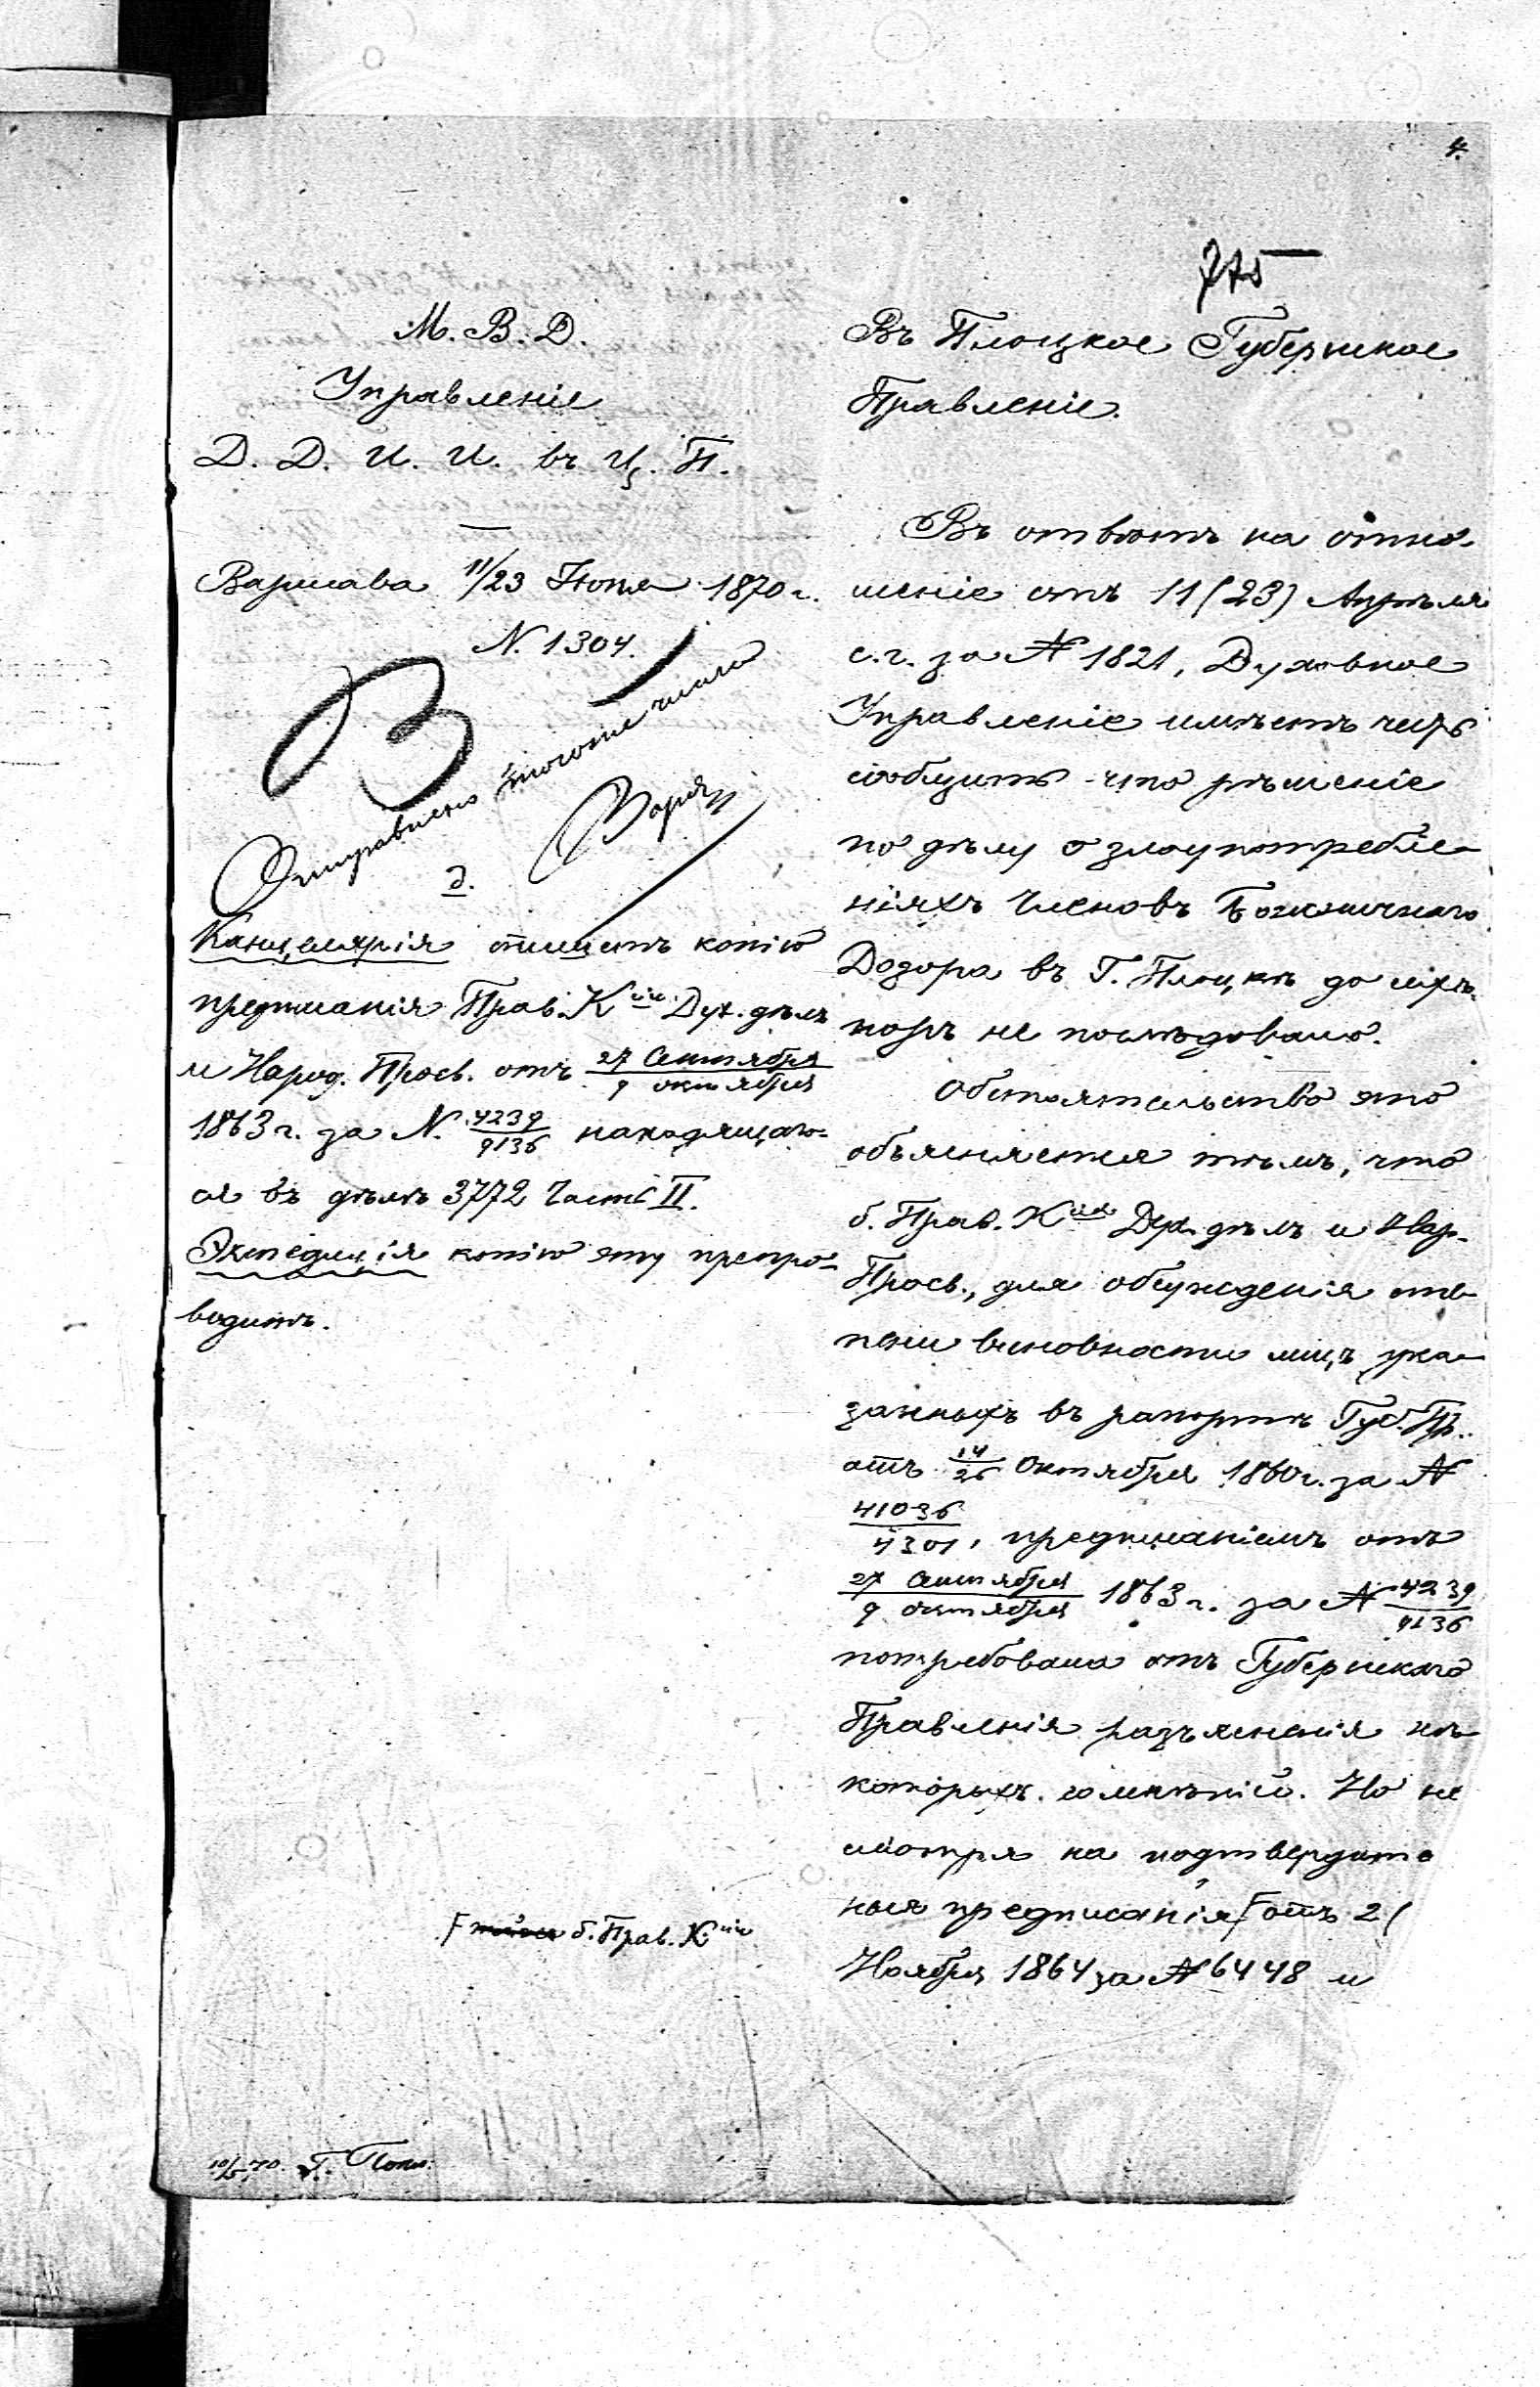 4.
М. В. Д.
Управленіе
Д. Д. И. И. въ Ц. П.
Варшава 11/23 Іюня 1870 г.
N. 1304.
Отправлено тогоже числа
Канцелярія отпишетъ копію
предписанія Прав. Кіи Дух. дѣлъ
и Народ. Просв. отъ 27 Сентября / 9 октября
1863 г. за N. 4239/9136 находящаго-
ся въ дѣлѣ 3772 Часть II.
Экспедиція копію эту препро-
водитъ.
б. Прав. Кіи
10/5 70.
Въ Плоцкое Губернское
Правленіе.
Въ отвѣтъ на отно-
шеніе отъ 11 (23) Апрѣля
с.г. за № 1821, Духовное
Управленіе имѣетъ честь
сообщить что рѣшеніе
по дѣлу о злоупотребле-
ніяхъ Членовъ Божничнаго
Дозора въ Г. Плоцкѣ до сихъ
поръ не послѣдовало.
Обстоятельство это
объясняется тѣмъ, что
б. Прав. Кія Дух. дѣлъ и Нар.
Просв., для обсужденія сте-
пени виновности лицъ ука-
занныхъ въ рапортѣ Губ. Пр.
отъ 14/26 Октября 1860 г. за №
41036/4301, предписаніемъ отъ
27 Сентября / 9 октября 1863 г. за № 4239/9136
потребовала отъ Губернскаго
Правленія разъясненія нѣ-
которыхъ сомнѣній. Но не
смотря на подтвердите
ныя предписанія отъ 2
Ноября 1864 за № 6448 и